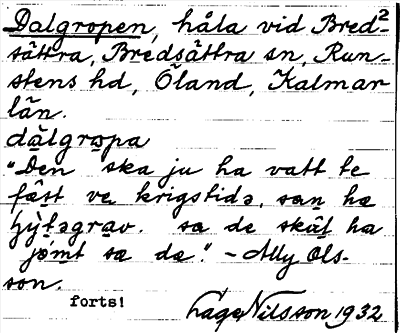 Dalgropen, håla vid Bred-2
sättra, Bredsättra sn, Run-
stens hd, Öland, Kalmar
län.
dalgropa
"Den ska ju ha vatt te
fäst ve krigstidə, san ha
gravə. sa de skät ha
jømt sa de." – Ally Ols-
son.
forts!
Låge Nilsson 1932